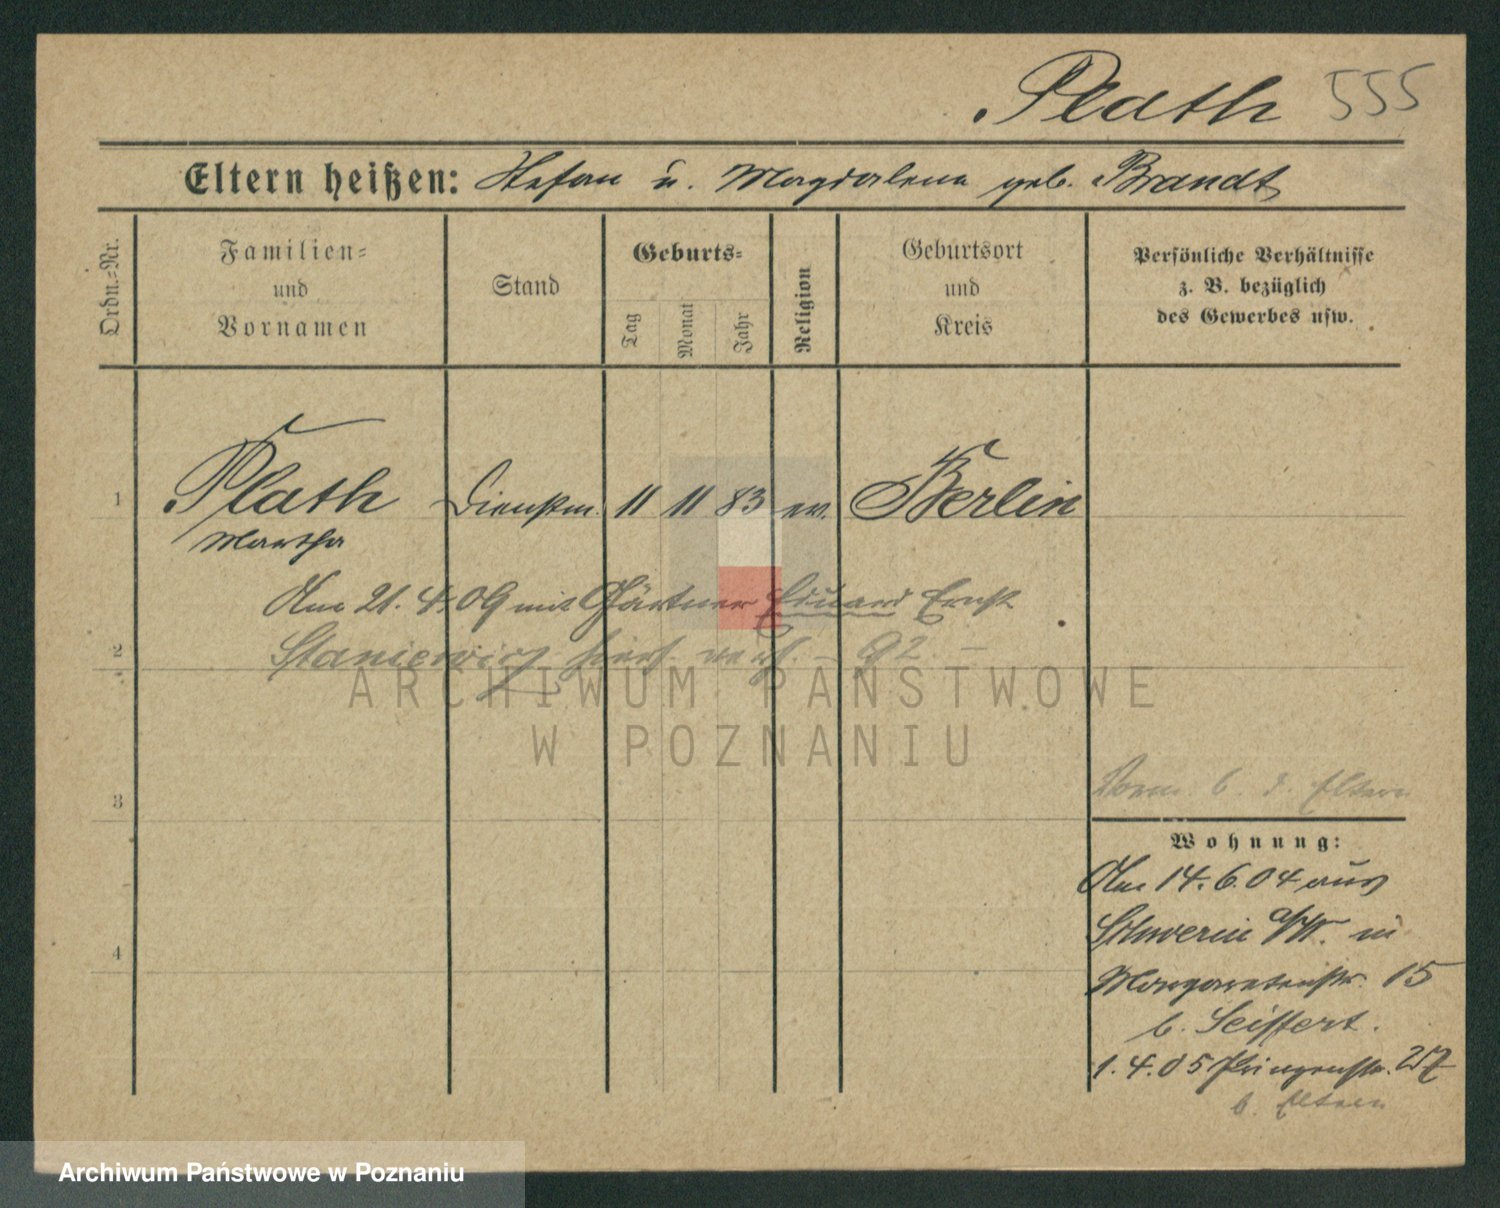 Plath 555
Eltern heißen: Stefan u. Magdalena geb. Brandt
Ordn.=Nr.
Familien=
und
Vornamen
Stand
Geburts=
Tag
Monat
Jahr
Religion
Geburtsort
und
Kreis
Persönliche Verhältnisse
z. B. bezüglich
des Gewerbes usw.
1 Plath Dienstm. 11 11 83 ev. Berlin
Martha
Am 21.4.09 mit Gärtner Eduard Ernst
2 Staniewicz hier verh. – 92. –
ARCHIWUM PAŃSTWOWE
W POZNANIU
3
b. d. Eltern
Wohnung:
Am 14.6.04 aus
4 Schwerin a/W. in
Margaretenstr. 15
b. Seiffert.
1.4.05 Prinzenstr. 27
b. Eltern
Archiwum Państwowe w Poznaniu